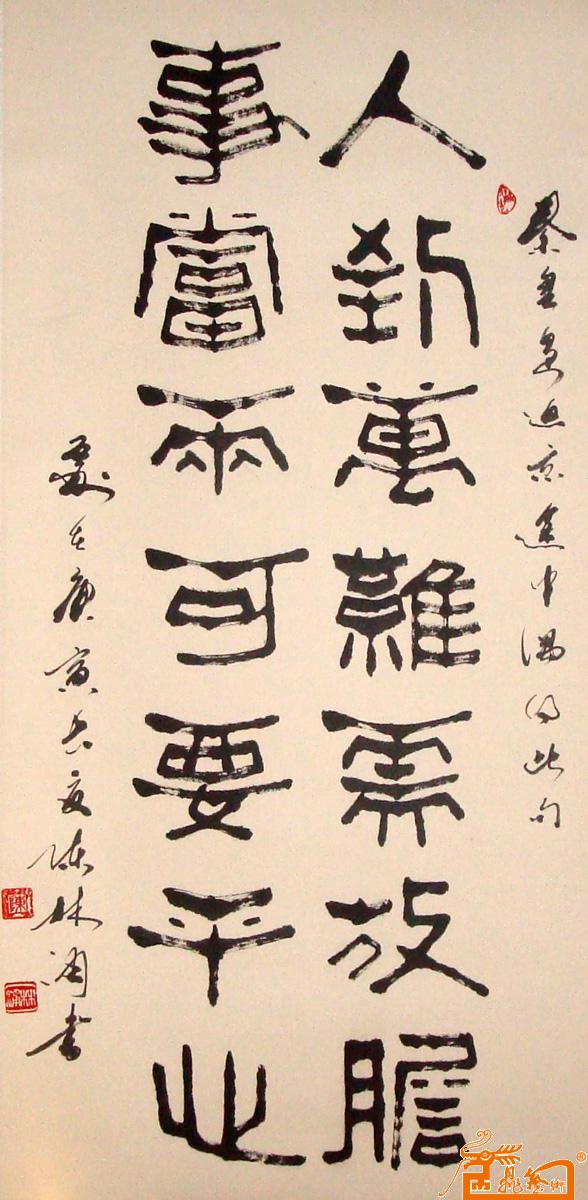 秦皇島返京途中偶得此句
人到萬難需放膽
事當兩可要平心
歲在庚寅夏陳林書